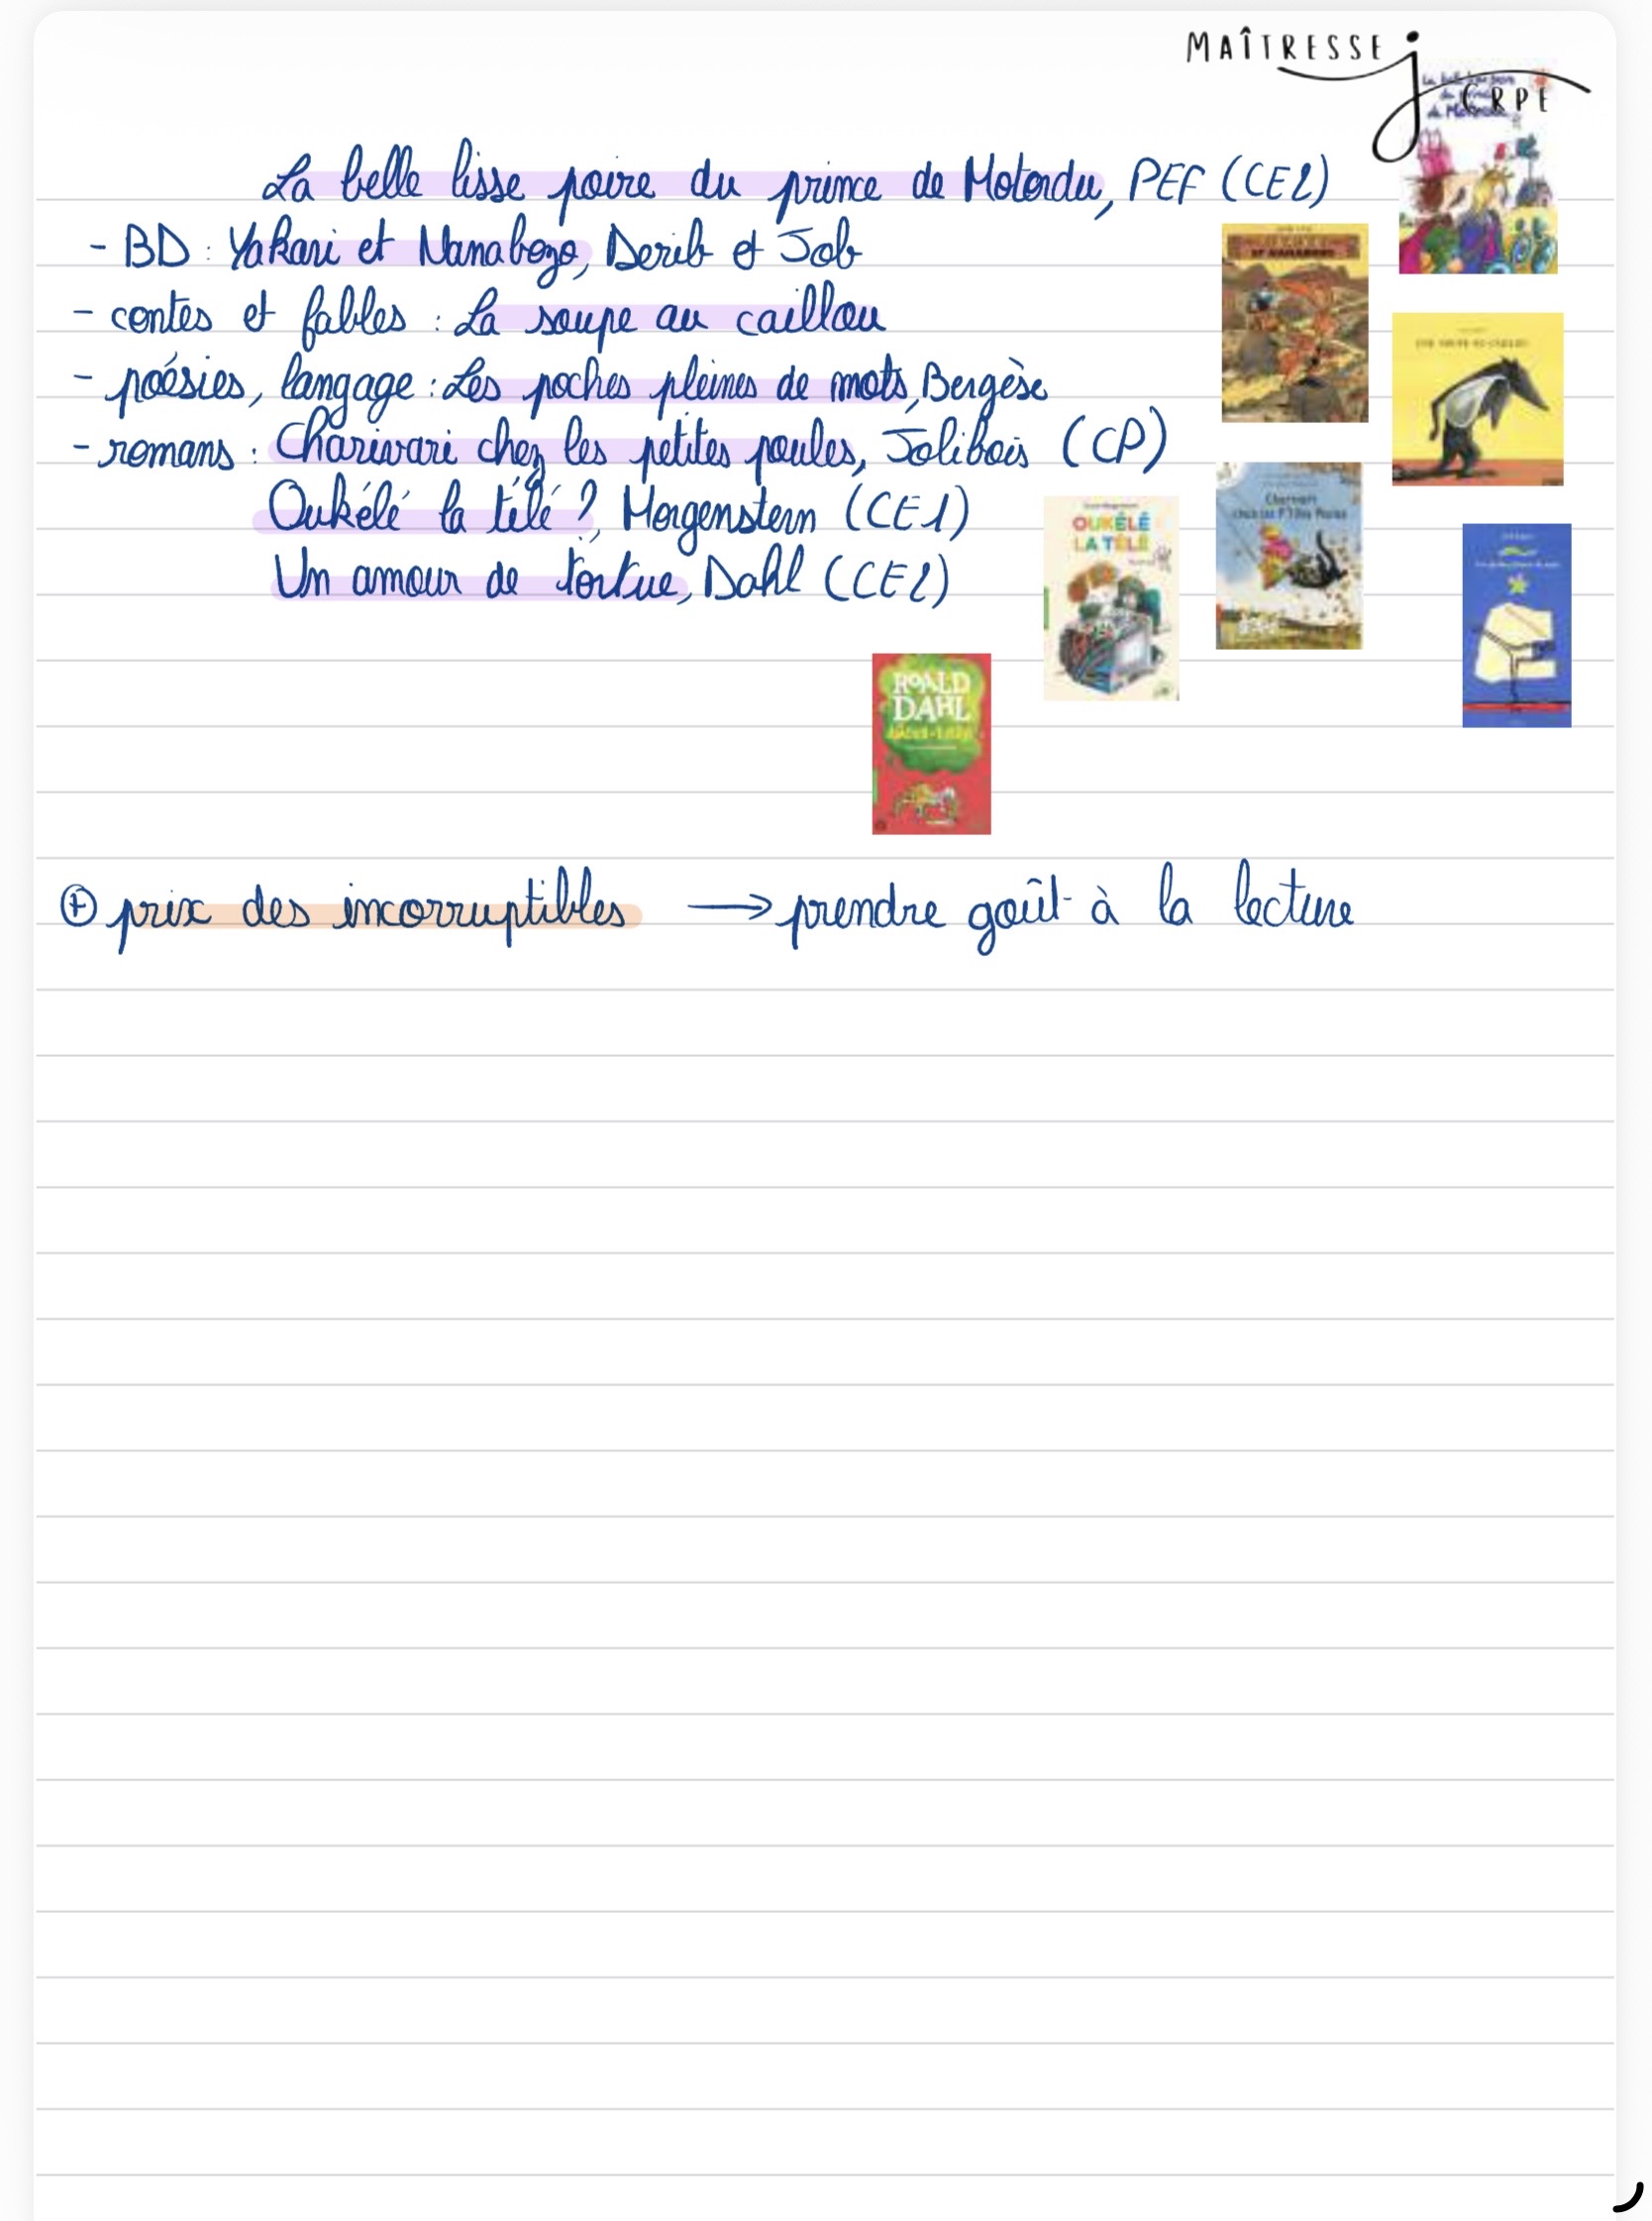 MAÎTRESSE J CRPE
La belle lisse poire du prince de Motordu, PEF (CE2)
- BD : Yakari et Nanabozo, Derib et Job
- contes et fables : La soupe au caillou
- poésies, langage : Les poches pleines de mots, Bergèse
- romans : Charivari chez les petites poules, Jolibois (CP)
Oukélé la télé ?, Morgenstern (CE1)
Un amour de tortue, Dahl (CE2)
OUKÉLÉ
LA TÉLÉ
Charivari
chez les P'tites Poules
ROALD
DAHL
⊕ prix des incorruptibles → prendre goût à la lecture